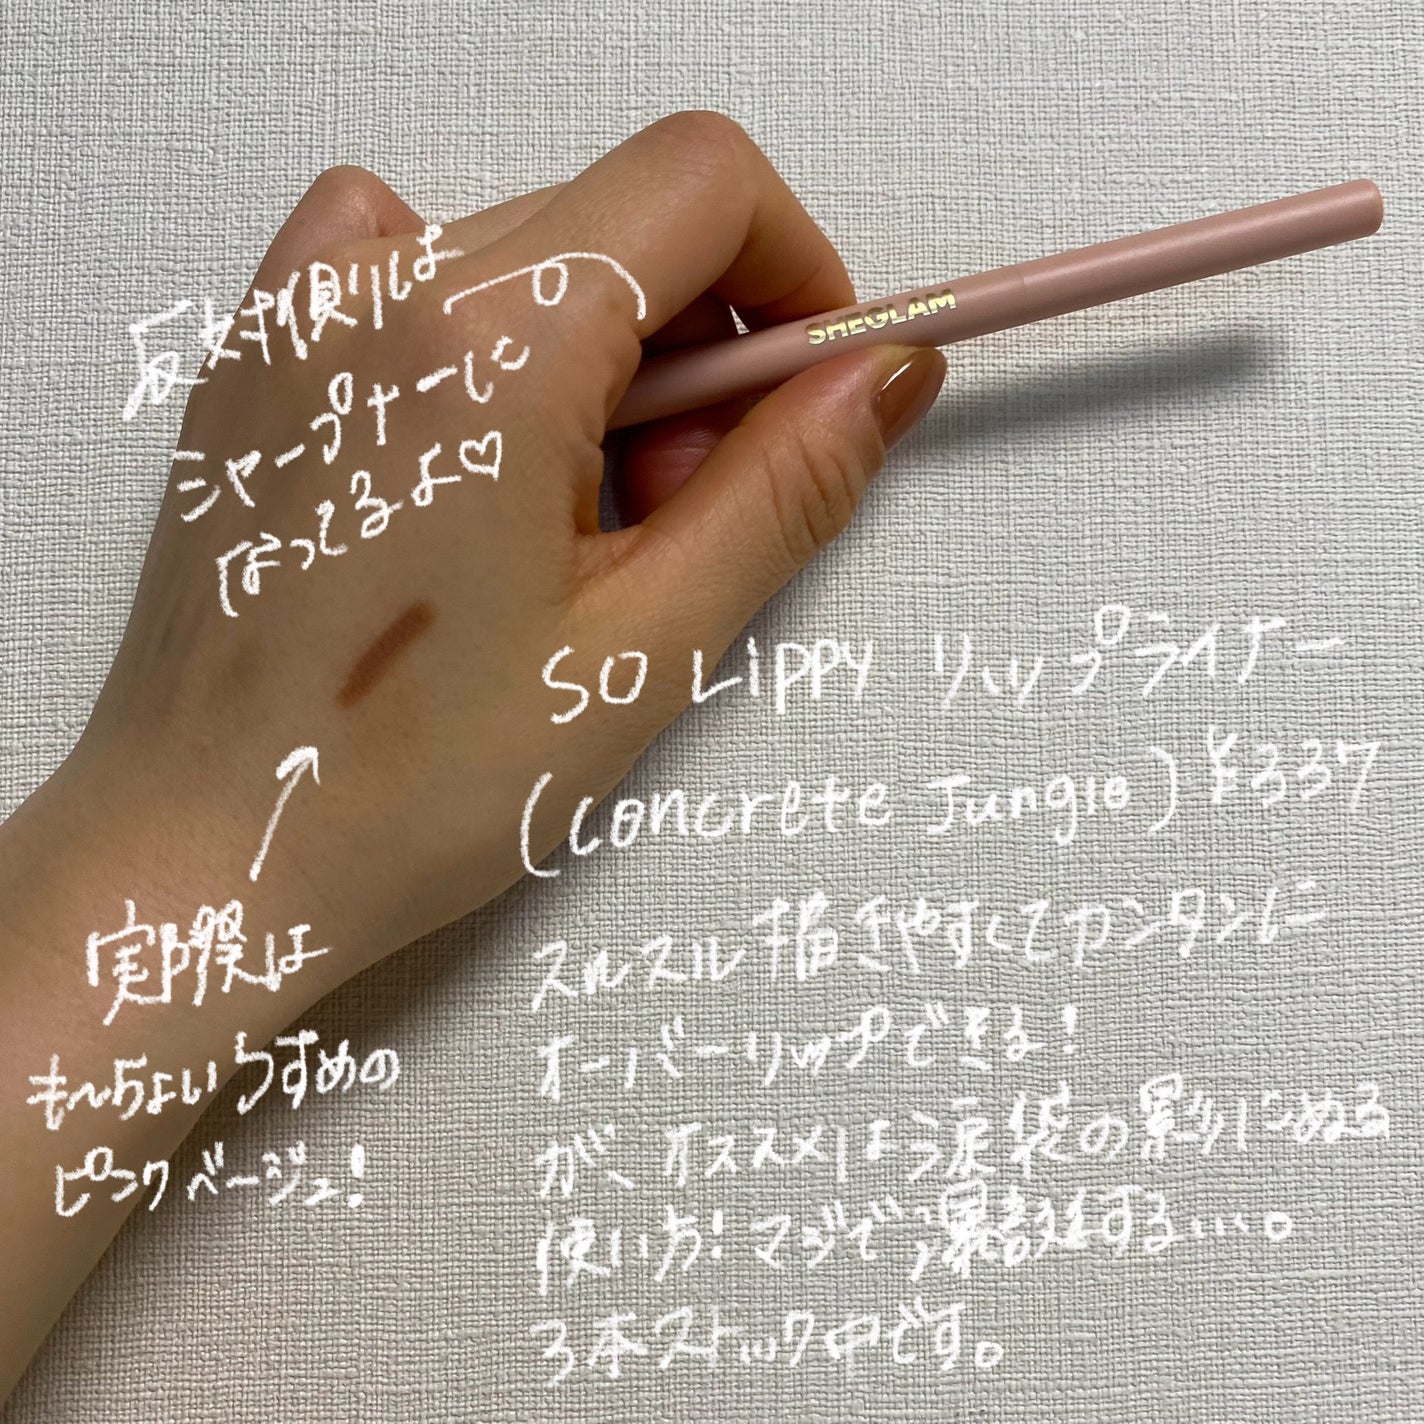 反対側は
シャープナーに
なってるよ♡
SHEGLAM
SO Lippy リップライナー
(Concrete Jungle) ¥337
スルスル描きやすくてカンタンに
オーバーリップできる!
が、オススメは涙袋の影に仕込める
使い方!マジで
する…。
3本ストック中です。
実際は
も〜ちょいうすめの
ピンクベージュ!